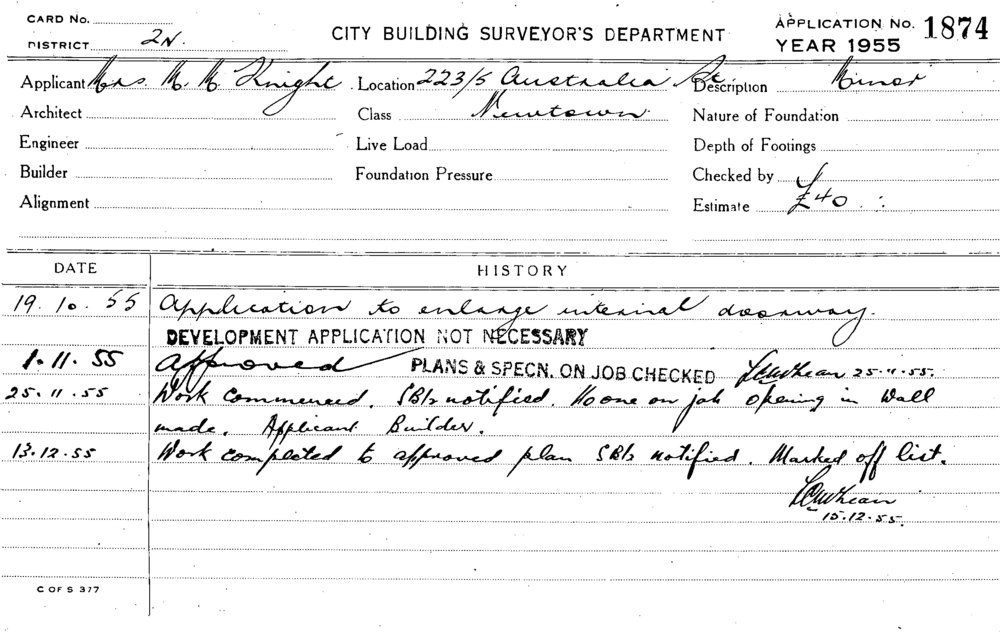 CARD No.
DISTRICT 2N.
CITY BUILDING SURVEYOR'S DEPARTMENT
APPLICATION No. 1874
YEAR 1955
Applicant Mrs. M. M. Knight Location 223/5 Australia St. Description Minor
Architect Class Newtown Nature of Foundation
Engineer Live Load Depth of Footings
Builder Foundation Pressure Checked by
Alignment Estimate £40
DATE HISTORY
19.10.55 Application to enlarge internal doorway.
DEVELOPMENT APPLICATION NOT NECESSARY
1.11.55 Approved PLANS & SPECN. ON JOB CHECKED 25.11.55.
25.11.55 Work commenced. notified. No one on job opening in Wall
made. Applicant Builder.
13.12.55 Work completed to approved plan notified. Marked off list.
15.12.55.
C OF S 377